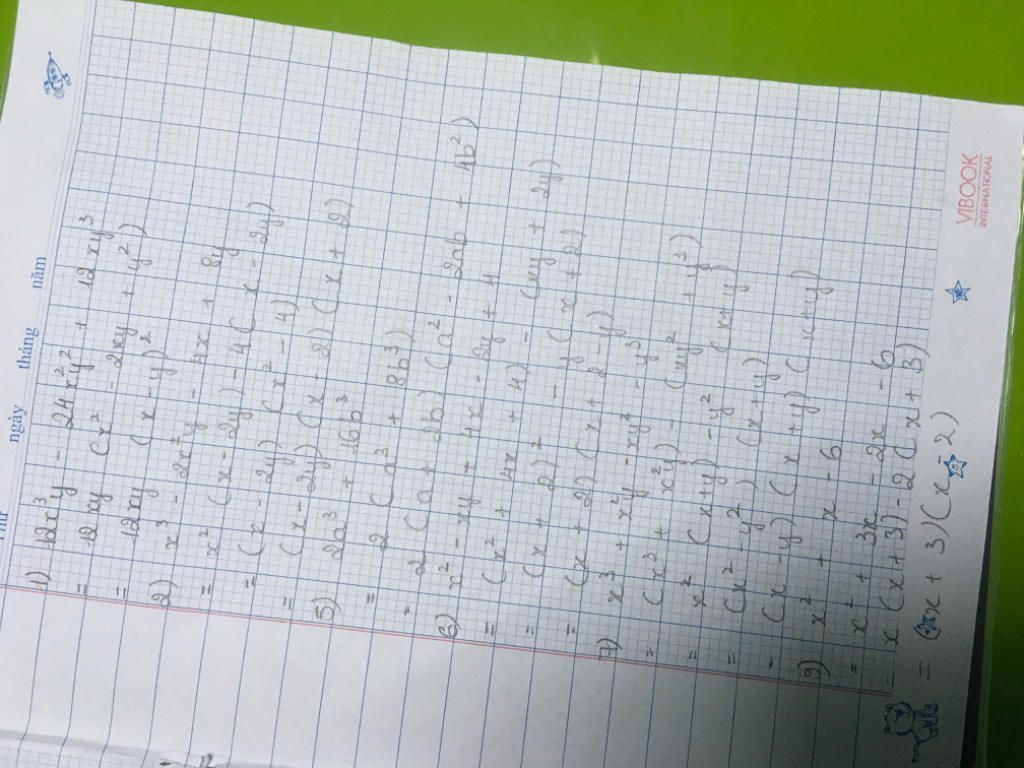 Thứ ngày tháng năm
1) 12x³y - 24x²y² + 12xy³
= 12xy (x² - 2xy + y²)
= 12xy (x - y)²
2) x³ - 2x²y - 4x + 8y
= x² (x - 2y) - 4(x - 2y)
= (x - 2y) (x² - 4)
= (x - 2y) (x - 2) (x + 2)
5) 2a³ + 16b³
= 2 (a³ + 8b³)
= 2 (a + 2b) (a² - 2ab + 4b²)
6) x² - xy + 4x - 2y + 4
= (x² + 4x + 4) - (xy + 2y)
= (x + 2)² - y (x + 2)
= (x + 2) (x + 2 - y)
7) x³ + x²y - xy² - y³
= (x³ + x²y) - (xy² + y³)
= x² (x+y) - y² (x+y)
= (x² - y²) (x+y)
= (x - y) (x + y) (x+y)
9) x² + x - 6
= x² + 3x - 2x - 6
= x (x + 3) - 2 (x + 3)
= (x + 3) (x - 2)
VIBOOK
INTERNATIONAL